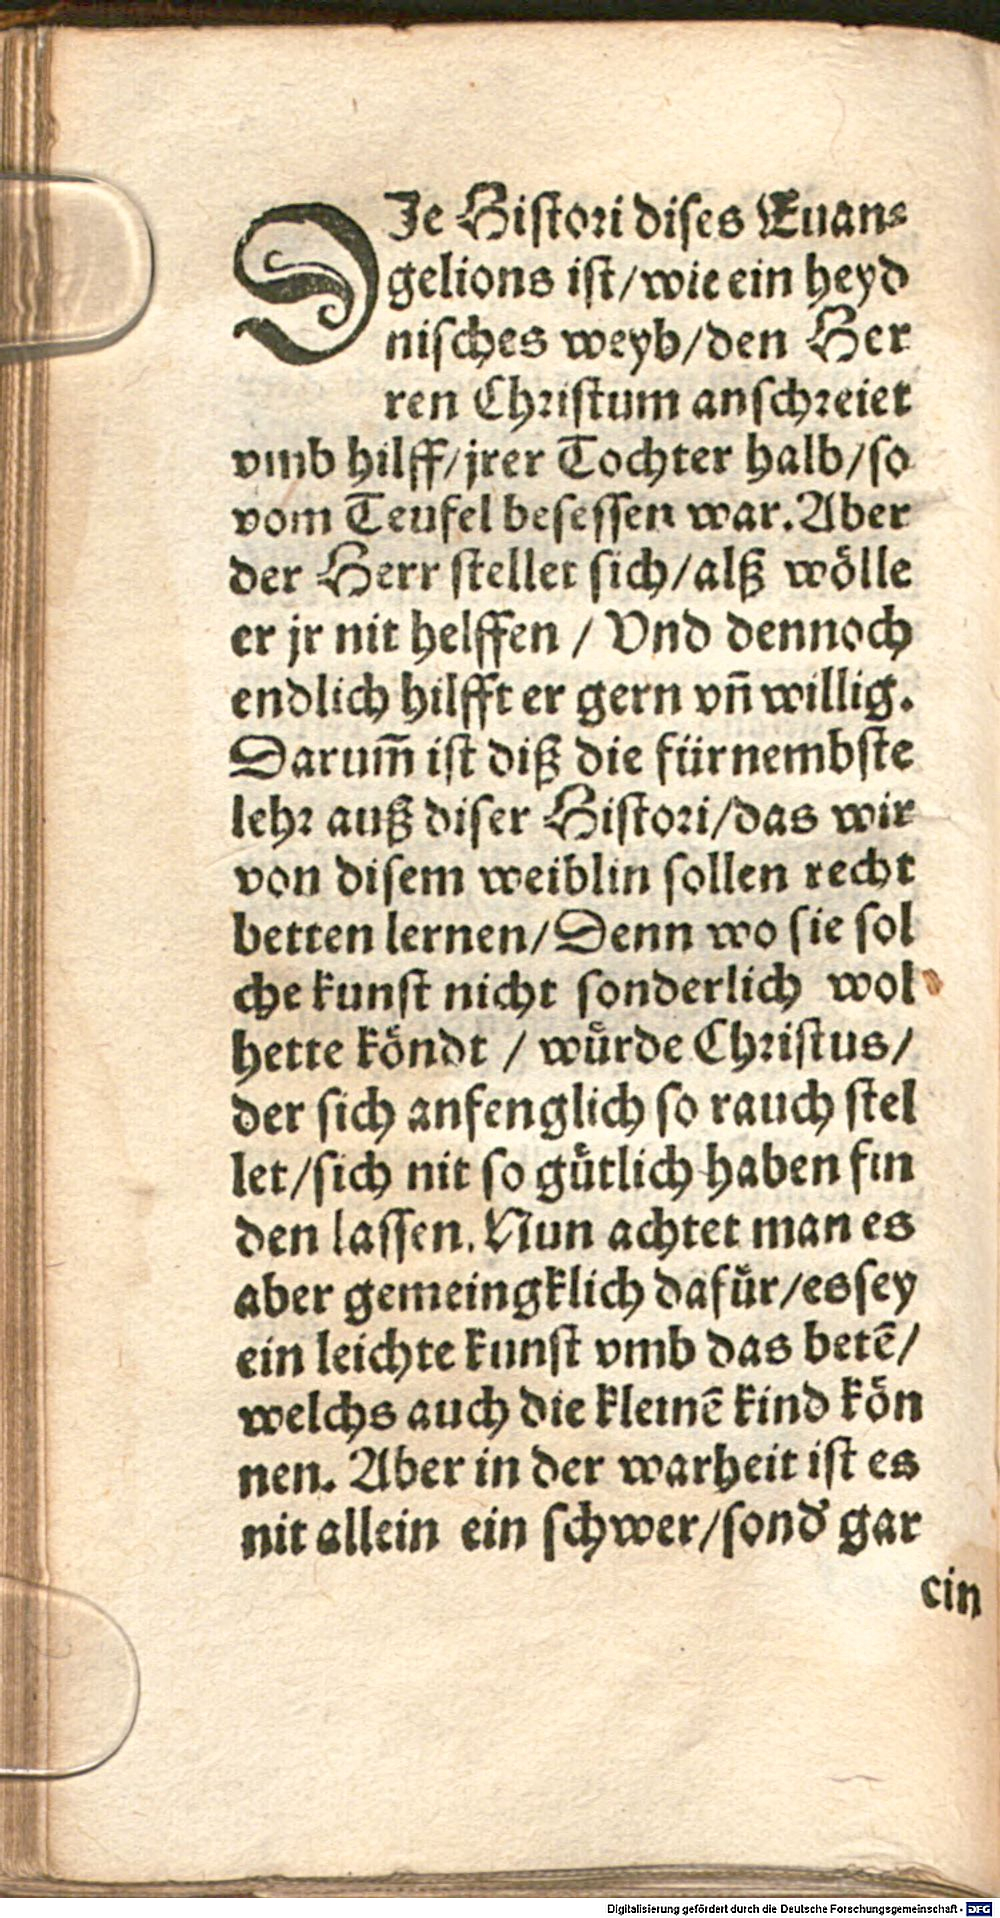 DJe Histori dises Euan⸗
gelions ist/wie ein heyd
nisches weyb/den Her
ren Christum anschreiet
vmb hilff/jrer Tochter halb/so
vom Teufel besessen war. Aber
der Herr stellet sich/alß wölle
er jr nit helffen / Vnd dennoch
endlich hilfft er gern vñ willig.
Darum̃ ist diß die fürnembste
lehr auß diser Histori/das wir
von disem weiblin sollen recht
betten lernen/Denn wo sie sol
che kunst nicht sonderlich wol
hette köndt / würde Christus/
der sich anfenglich so rauch stel
let/sich nit so gütlich haben fin
den lassen. Nun achtet man es
aber gemeingklich dafür/es sey
ein leichte kunst vmb das betẽ/
welchs auch die kleinẽ kind kön
nen. Aber in der warheit ist es
nit allein ein schwer/sond̕ gar
ein
Digitalisierung gefördert durch die Deutsche Forschungsgemeinschaft - DFG